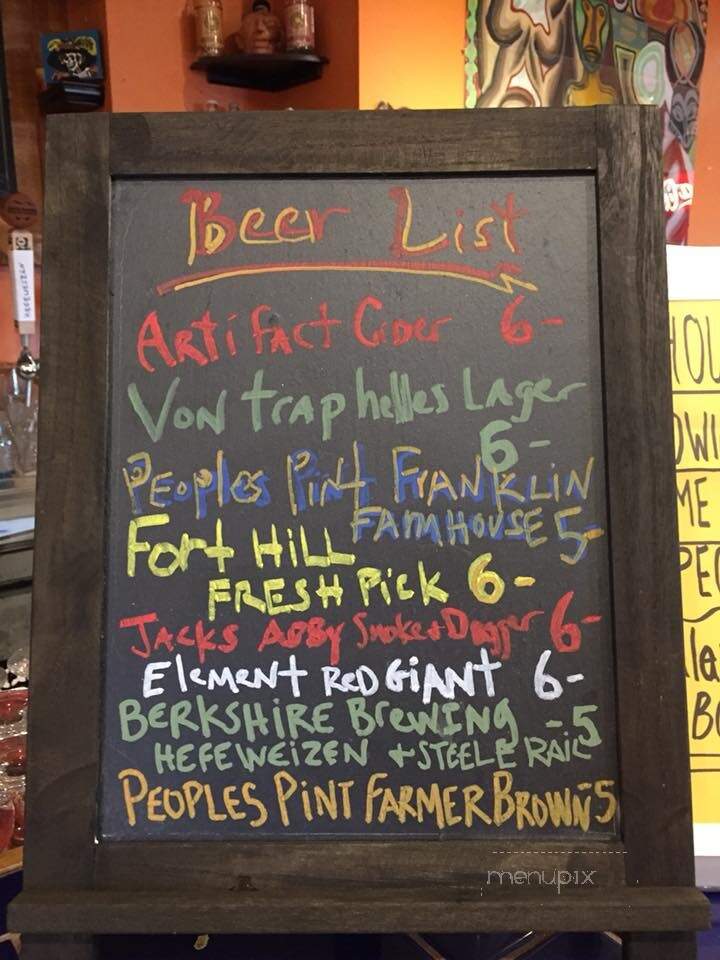 Beer List
Artifact Cider 6-
Von trap helles Lager
6-
Peoples Pint Franklin
Farmhouse 5-
Fort Hill
Fresh Pick 6-
Jacks Abby Smoke + Dagger 6-
Element Red Giant 6-
Berkshire Brewing -5
Hefeweizen + Steele Rail
Peoples Pint Farmer Browns 5
menupix
HEFEWEIZEN